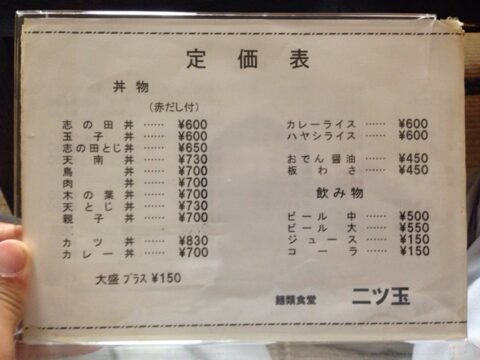 定価表
丼物
(赤だし付)
志の田丼 …… ¥600
玉子丼 …… ¥600
志の田とじ丼 …… ¥650
天南丼 …… ¥730
鳥丼 …… ¥700
肉丼 …… ¥700
木の葉丼 …… ¥700
天とじ丼 …… ¥730
親子丼 …… ¥700
カツ丼 …… ¥830
カレー丼 …… ¥700
大盛プラス ¥150
カレーライス …… ¥600
ハヤシライス …… ¥600
おでん醤油 …… ¥450
板わさ …… ¥450
飲み物
ビール中 …… ¥500
ビール大 …… ¥550
ジュース …… ¥150
コーラ …… ¥150
麺類食堂 二ツ玉